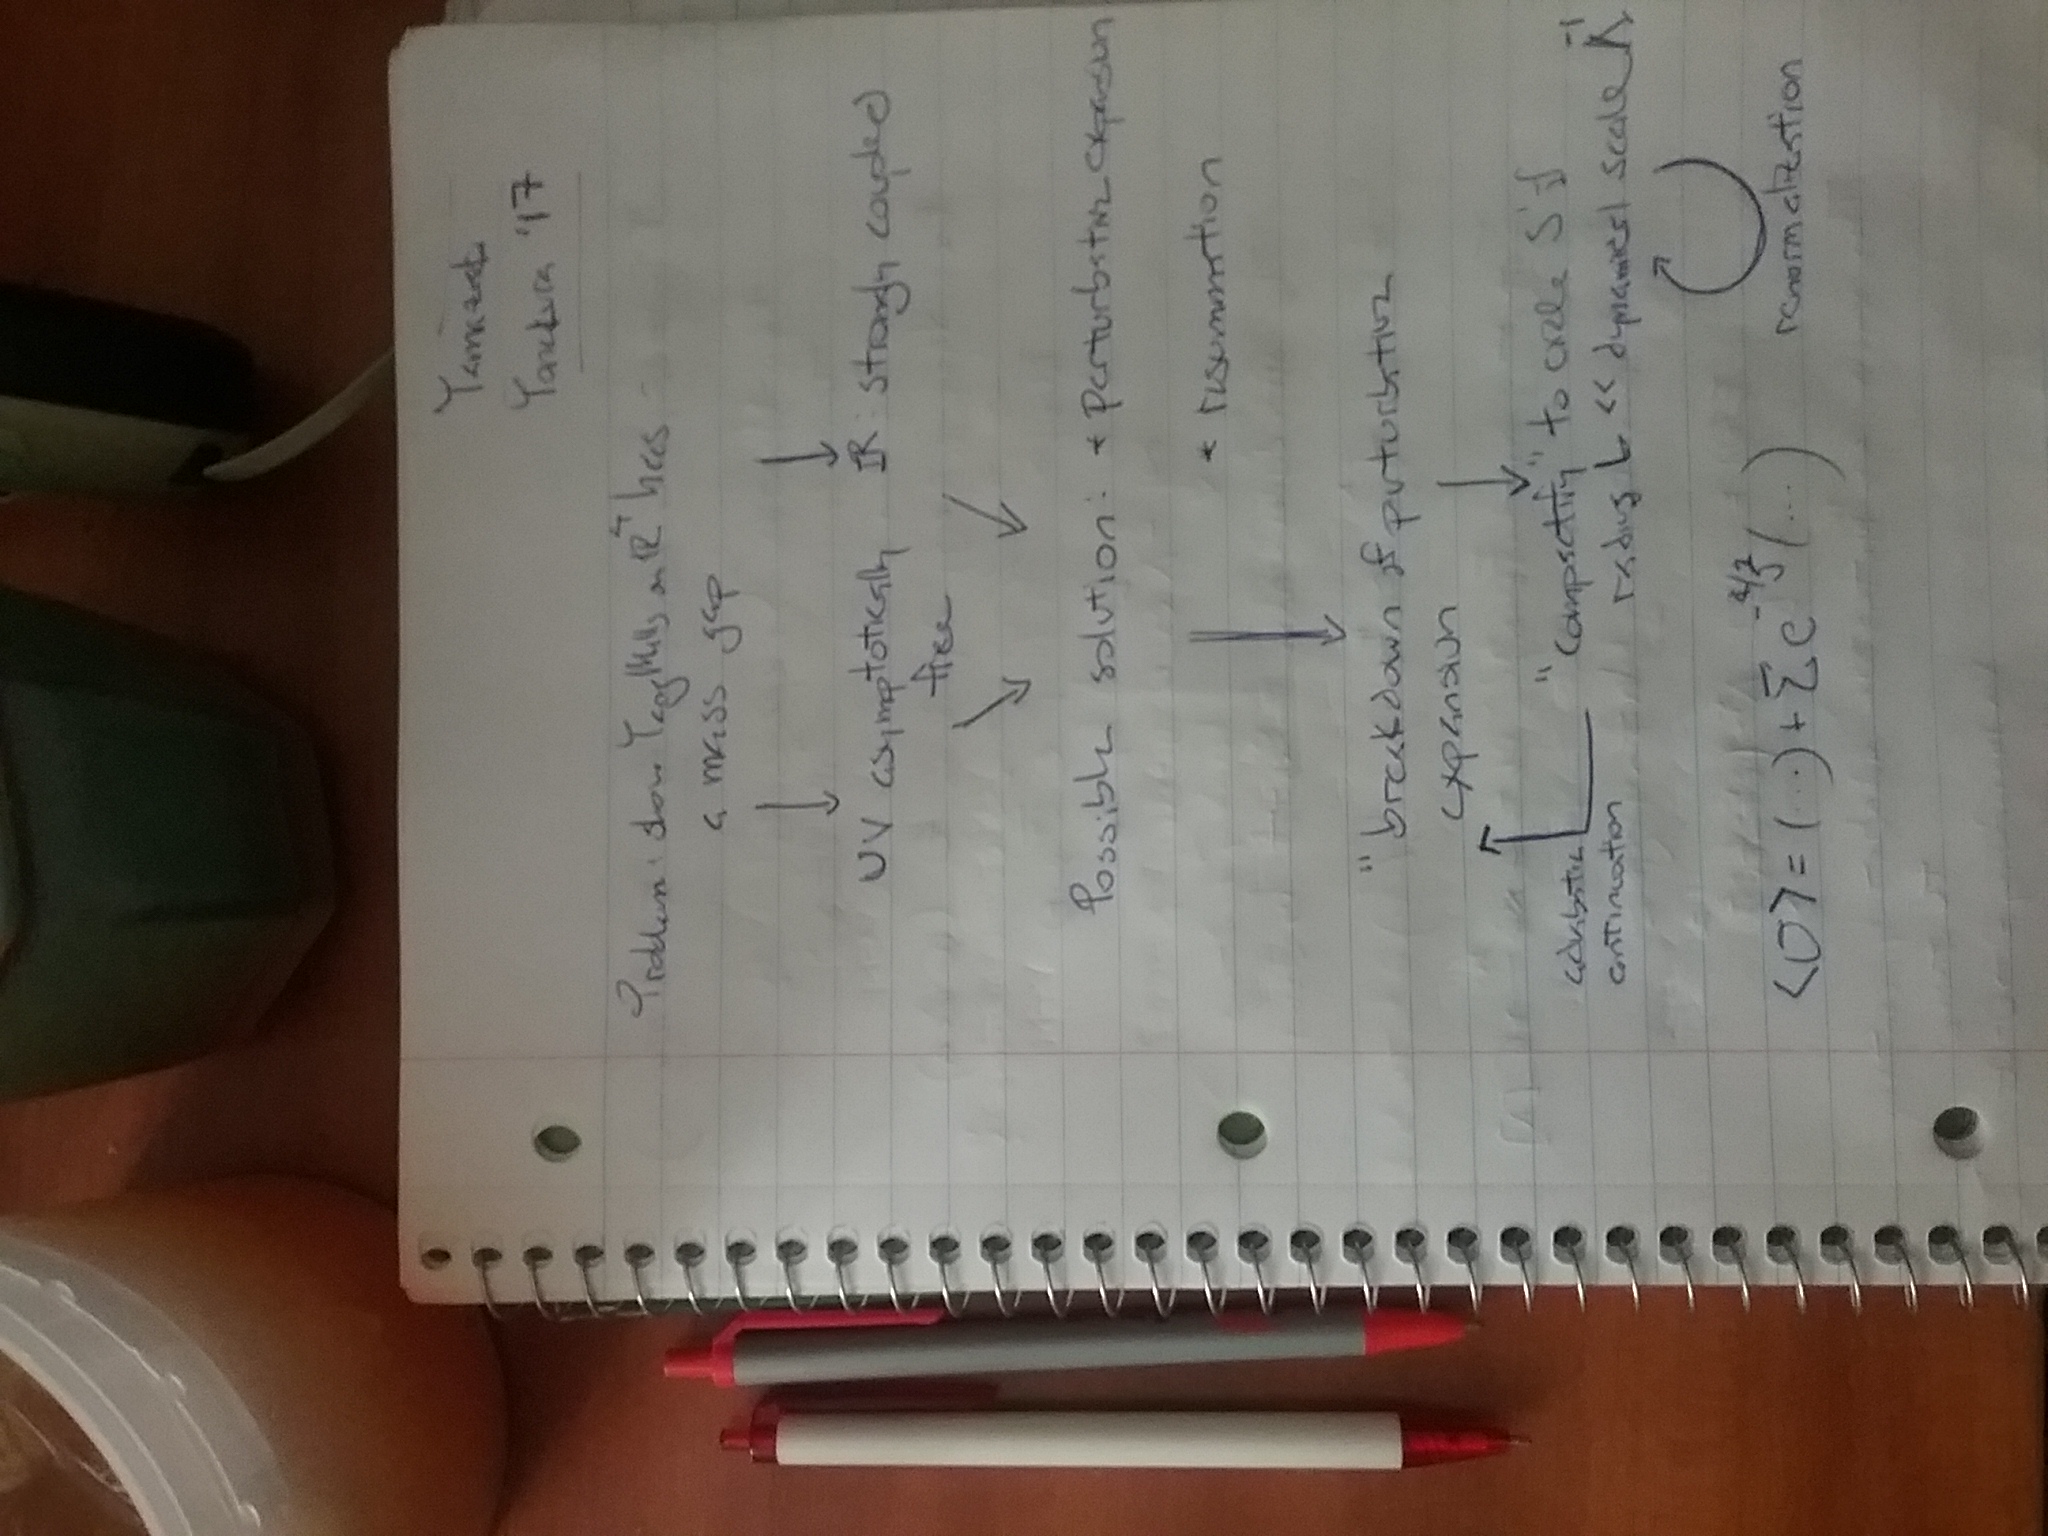 Yamazaki
Yonekura '17
Problem: show Yang Mills on ℝ⁴ has
a mass gap
UV asymptotically
free
IR: strongly coupled
Possible solution: * Perturbative expansion
* resummation
"breakdown of perturbative
expansion
"compactify" to circle S¹ of
radius L << dynamical scale Λ⁻¹
adiabatic
continuation
renormalization
<O> = (...) + Σ e (...)